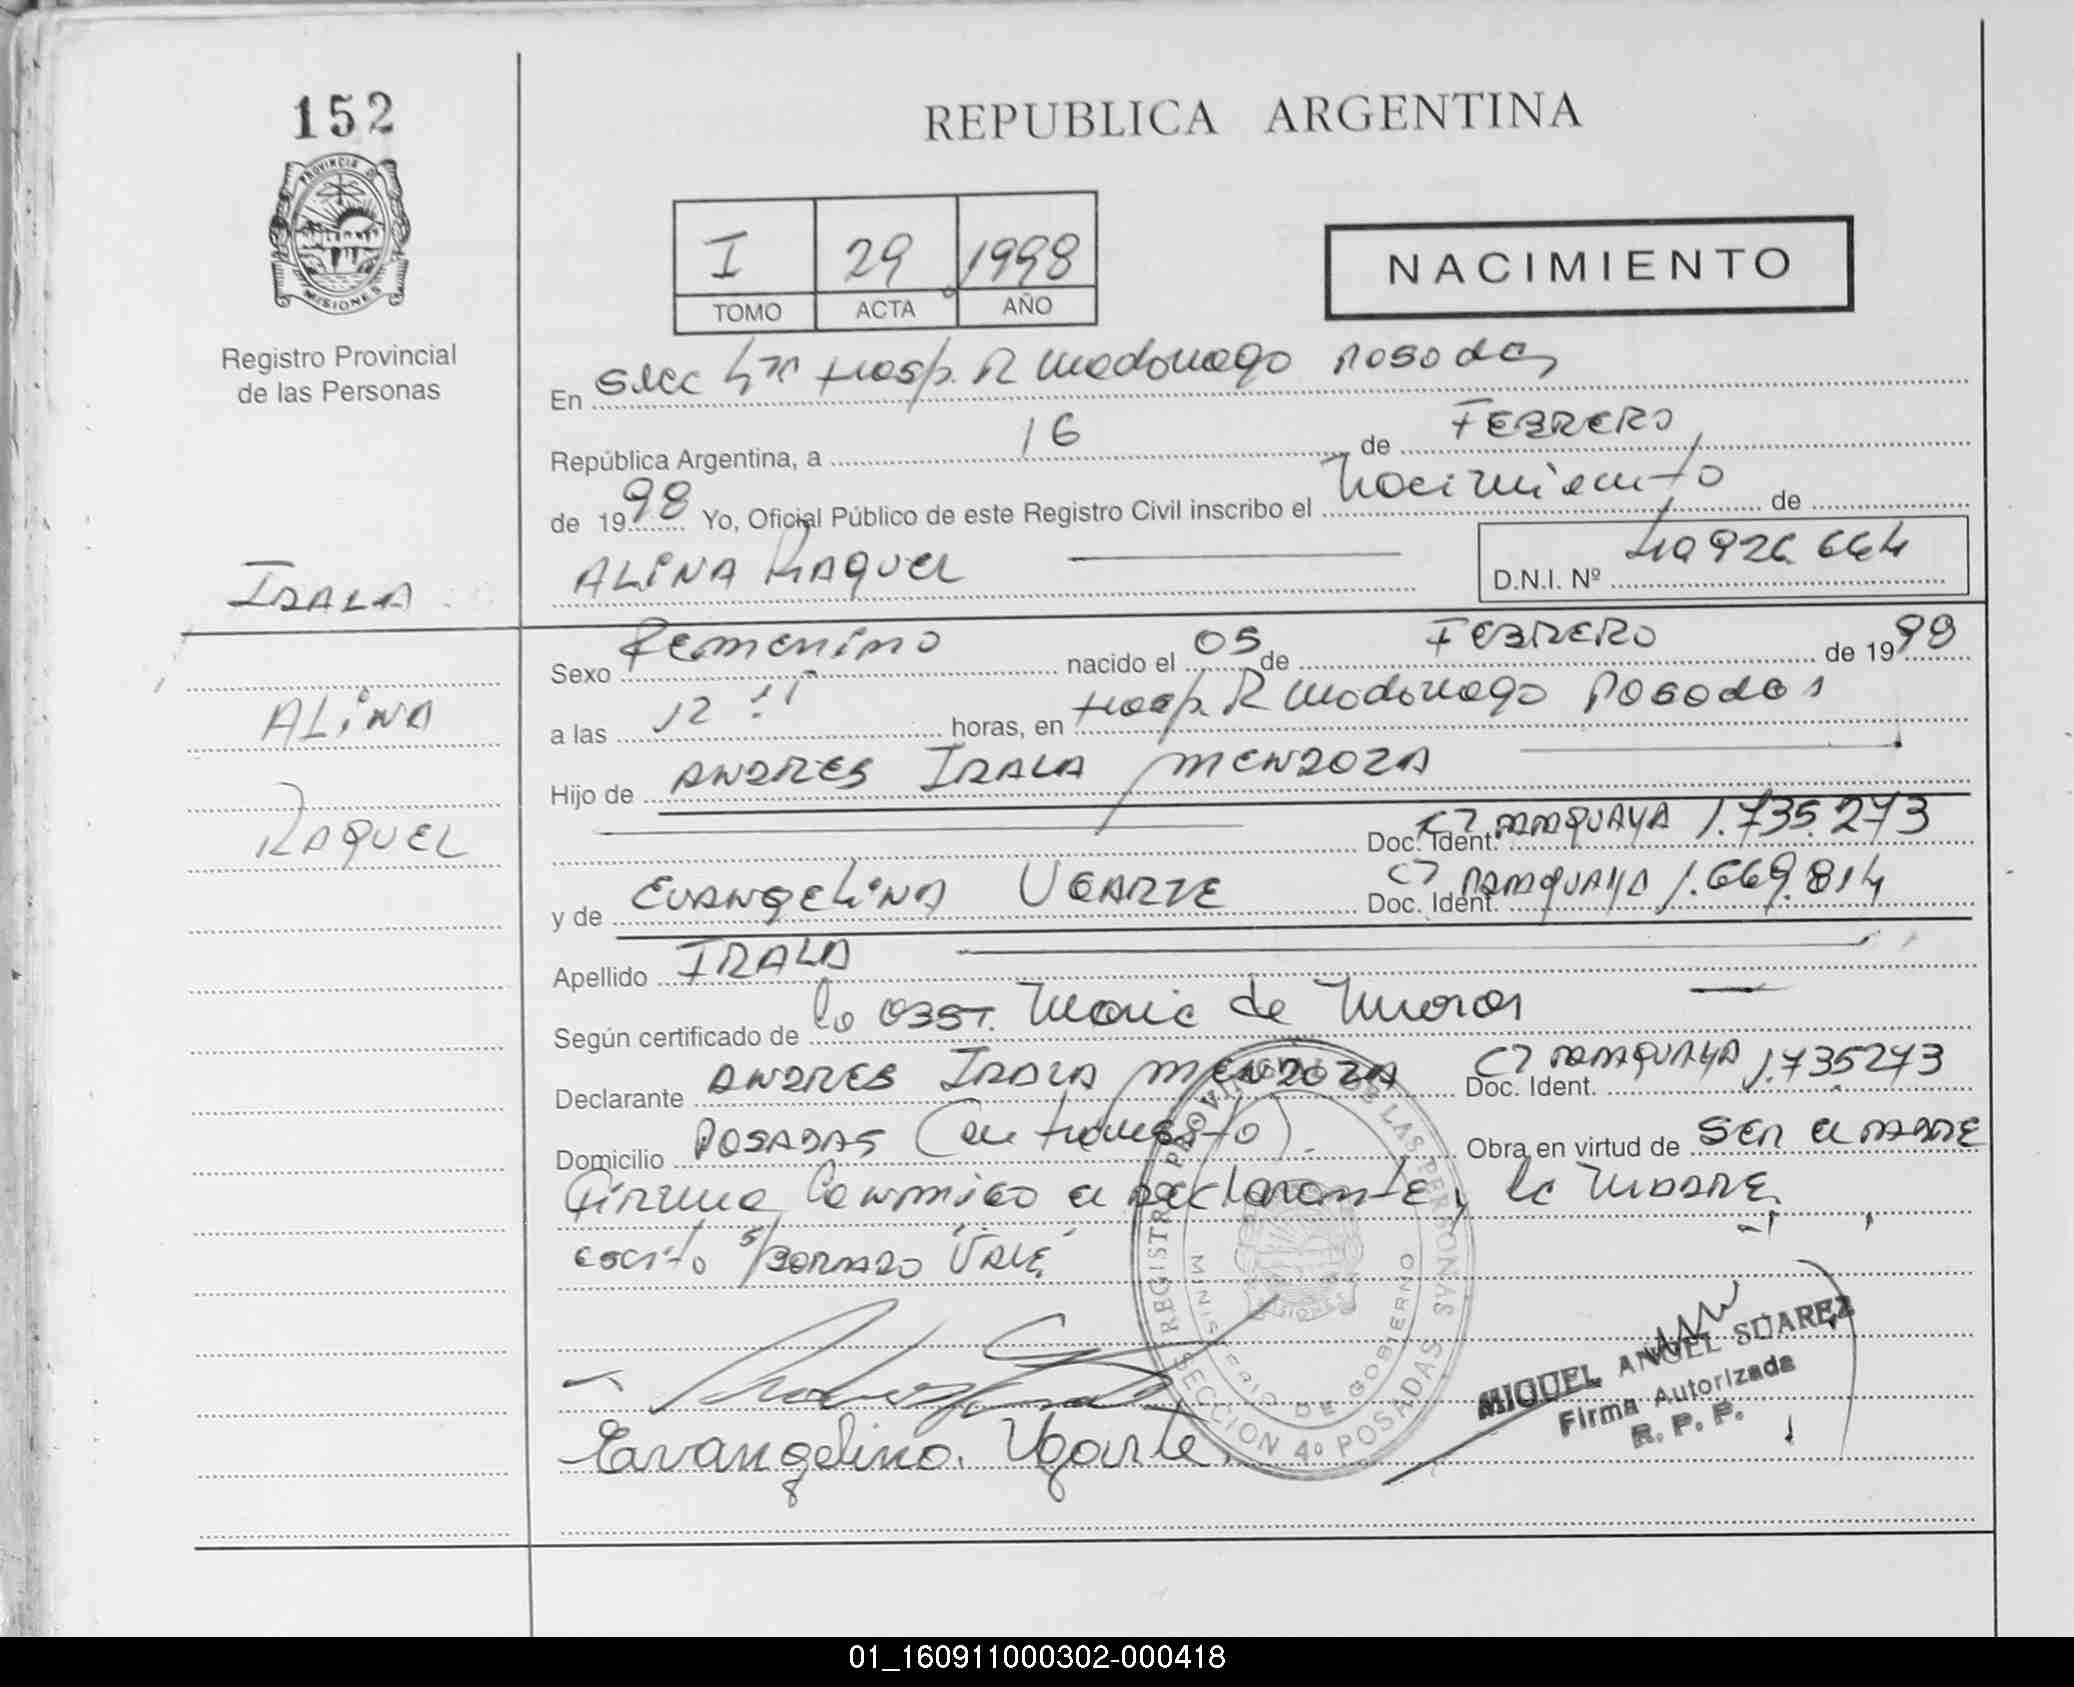 152
REPUBLICA ARGENTINA
PROVINCIA DE MISIONES
Registro Provincial
de las Personas
I 29 1998
TOMO ACTA AÑO
NACIMIENTO
En Secc 4ta Hosp. R Madariaga Posadas
República Argentina, a 16 de FEBRERO
de 1998 Yo, Oficial Público de este Registro Civil inscribo el Nacimiento de
ALINA RAQUEL D.N.I. Nº 40 926 664
IRALA
ALINA
RAQUEL
Sexo Femenino nacido el 05 de FEBRERO de 1998
a las 12 horas, en Hosp. R Madariaga Posadas
Hijo de ANDRES IRALA MENDOZA
Doc. Ident. CI PARAGUAYA 1.735.273
y de EVANGELINA UGARTE Doc. Ident. CI PARAGUAYA 1.669.814
Apellido IRALA
Según certificado de la OBST. Maria de
Declarante ANDRES IRALA MENDOZA Doc. Ident. CI PARAGUAYA 1.735273
Domicilio POSADAS ( ). Obra en virtud de SER el PADRE
Firma Conmigo el declarante y la MADRE.
escrito s/BORRADO "VALE"
Evangelina Ugarte.
REGISTRO PROVINCIAL DE LAS PERSONAS
MINISTERIO DE GOBIERNO
SECCION 4º POSADAS
MIGUEL ANGEL SUAREZ
Firma Autorizada
R. P. P.
01_160911000302-000418